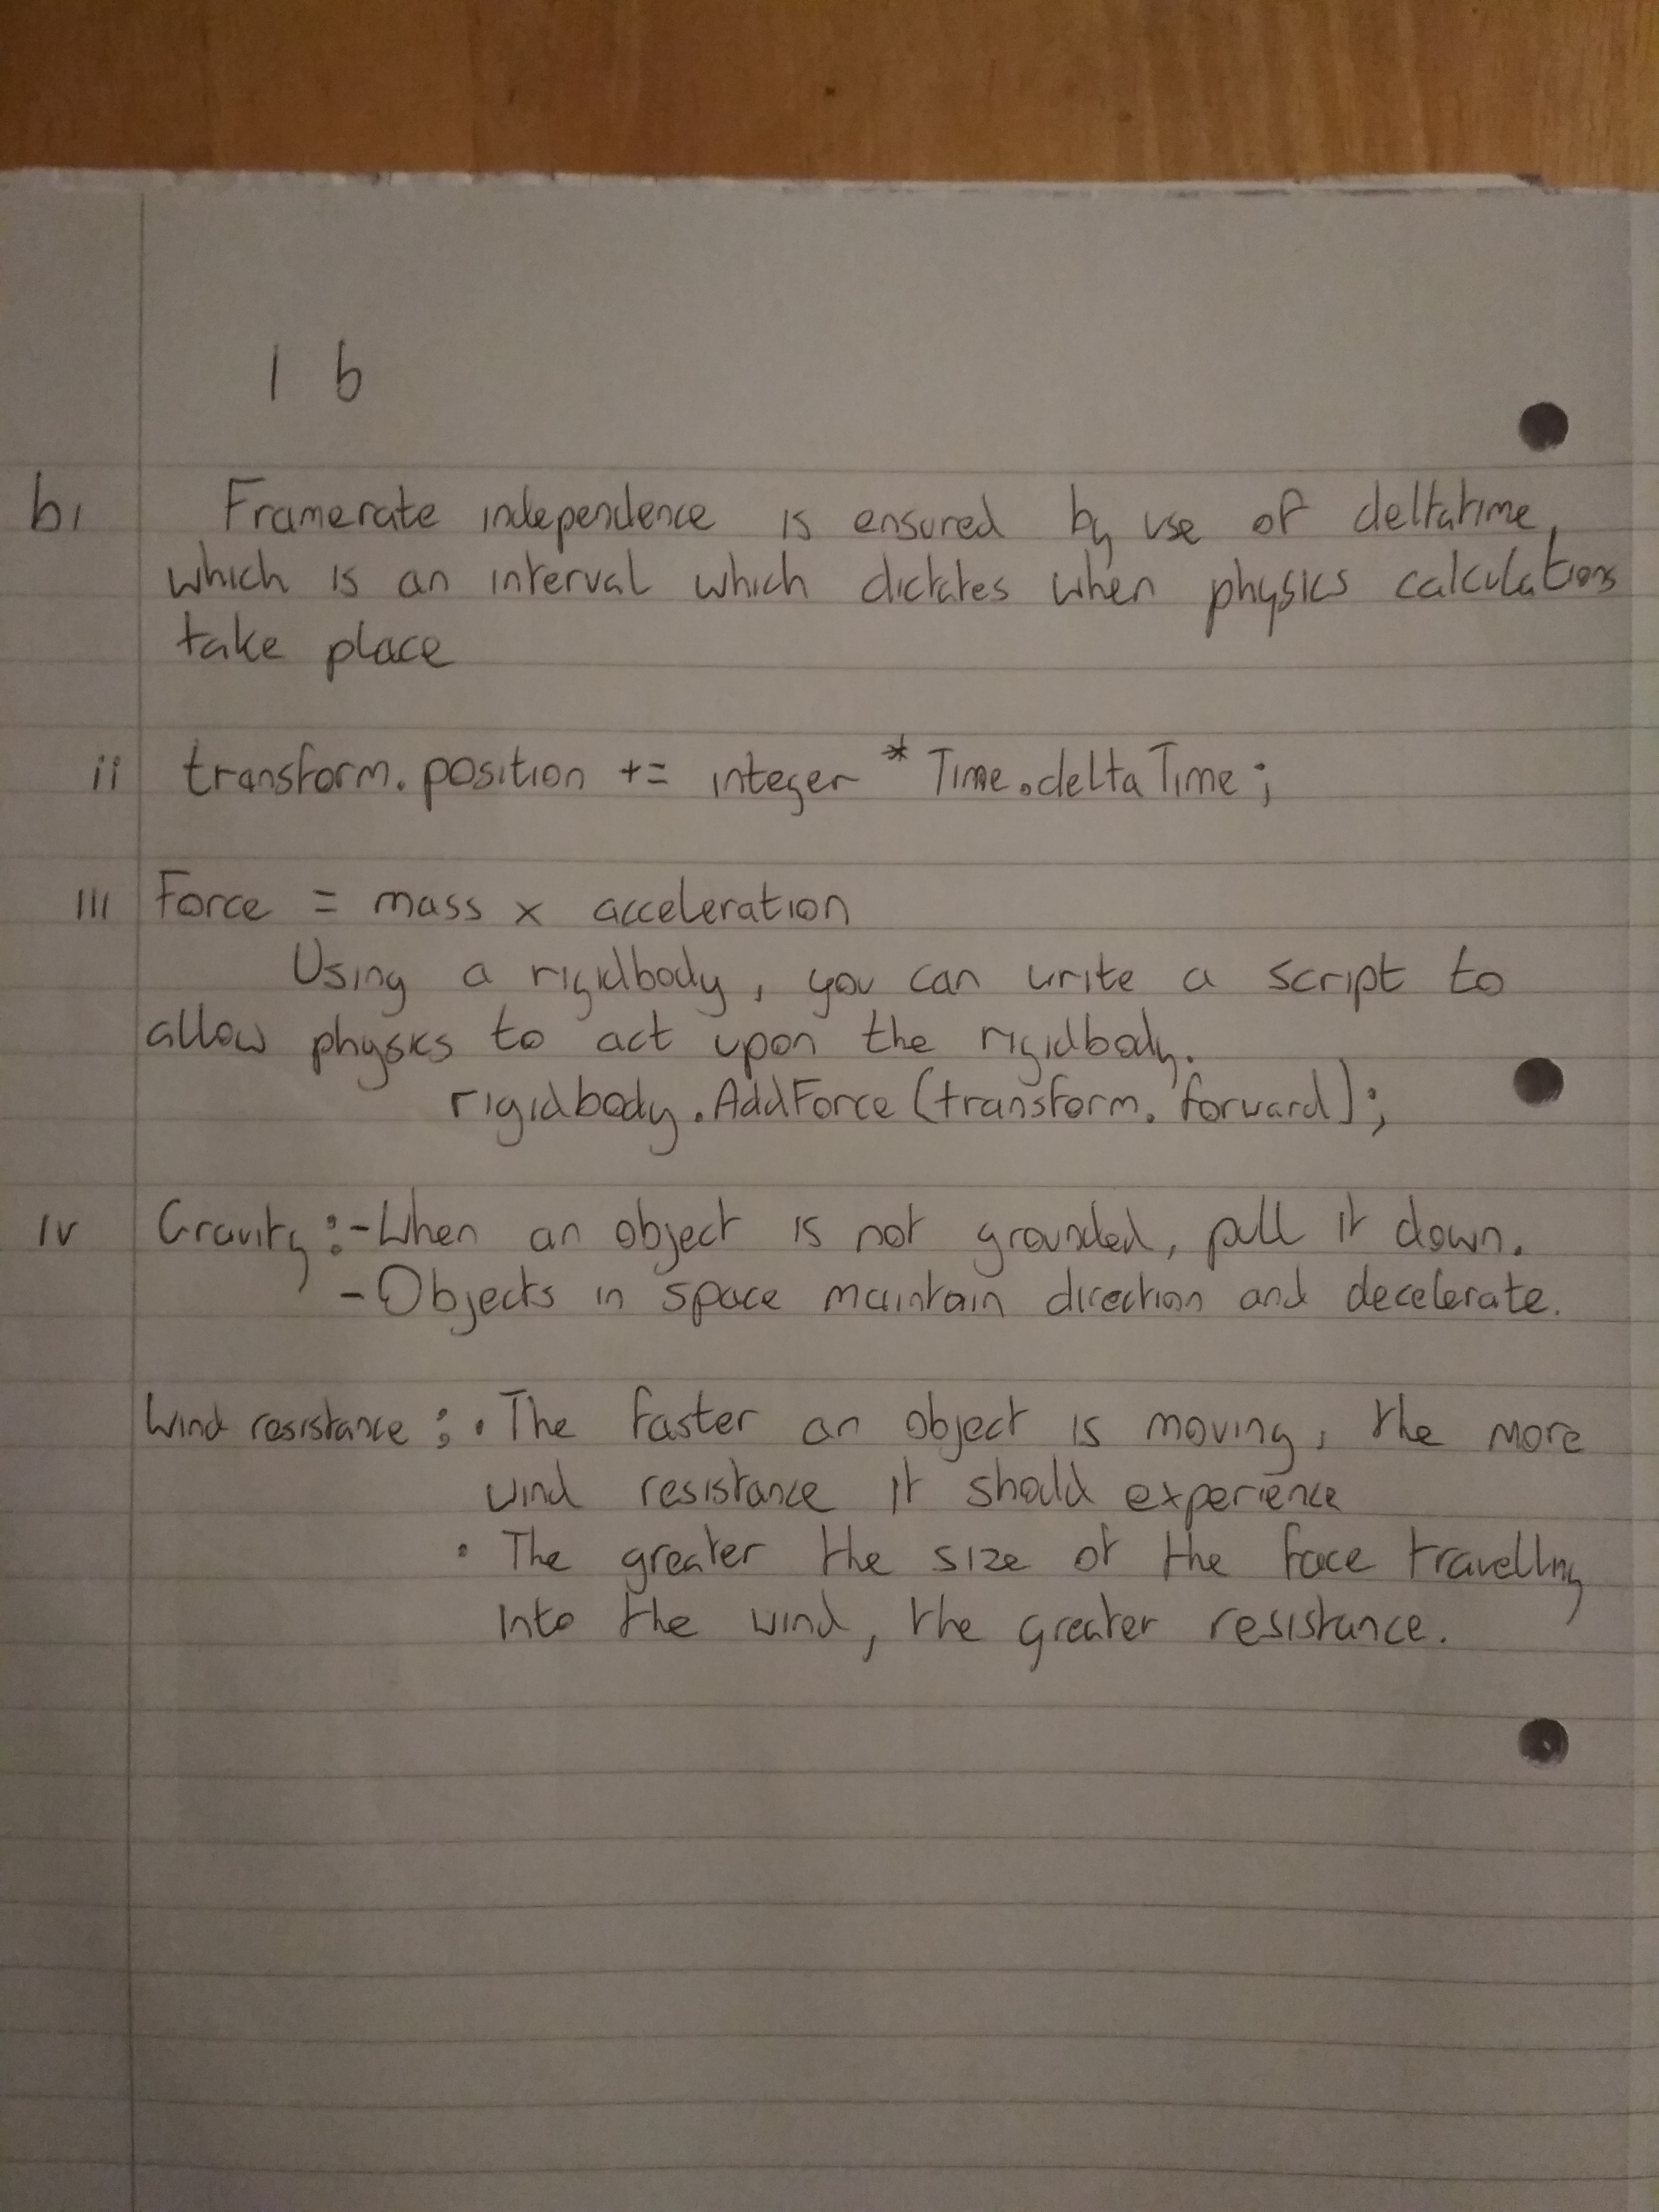 1 b
bi Framerate independence is ensured by use of deltatime,
which is an interval which dictates when physics calculations
take place
ii transform.position += integer * Time.deltaTime;
iii Force = mass x acceleration
Using a rigidbody, you can write a script to
allow physics to act upon the rigidbody.
rigidbody.AddForce(transform.forward);
iv Gravity:-When an object is not grounded, pull it down.
-Objects in space maintain direction and decelerate.
Wind resistance; • The faster an object is moving, the more
wind resistance it should experience
• The greater the size of the face travelling
into the wind, the greater resistance.